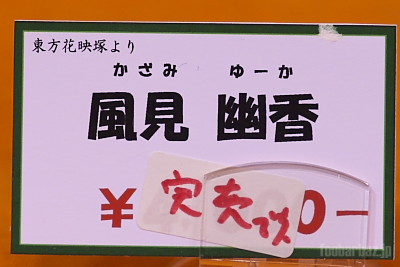 東方花映塚より
かざみ ゆーか
風見 幽香
完売です
¥ 0ー
Toobarbaz.jp